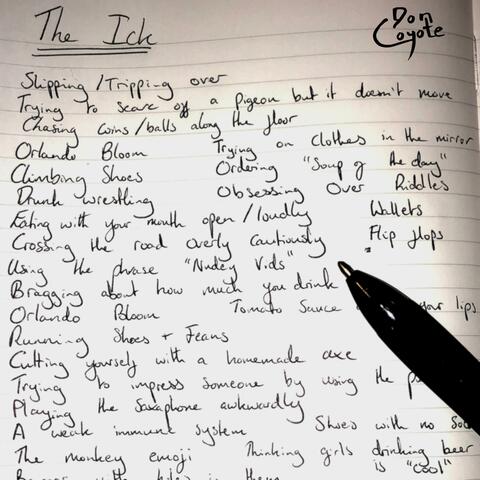 The Ick
Don
Coyote
Slipping/Tripping over
Trying to scare off a pigeon but it doesn't move
Chasing coins/balls along the floor
Orlando Bloom Trying on clothes in the mirror
Climbing Shoes Ordering "Soup of the day"
Drunk wrestling Obsessing Over Riddles
Eating with your mouth open/loudly Wallets
Crossing the road overly cautiously Flip flops
Using the phrase "Nudey Vids"
Bragging about how much you drink
Orlando Bloom Tomato Sauce your lips
Running Shoes + Jeans
Cutting yourself with a homemade axe
Trying to impress someone by using the
Playing the Saxaphone awkwardly
A weak immune system Shoes with no
The monkey emoji Thinking girls drinking beer
is "cool"